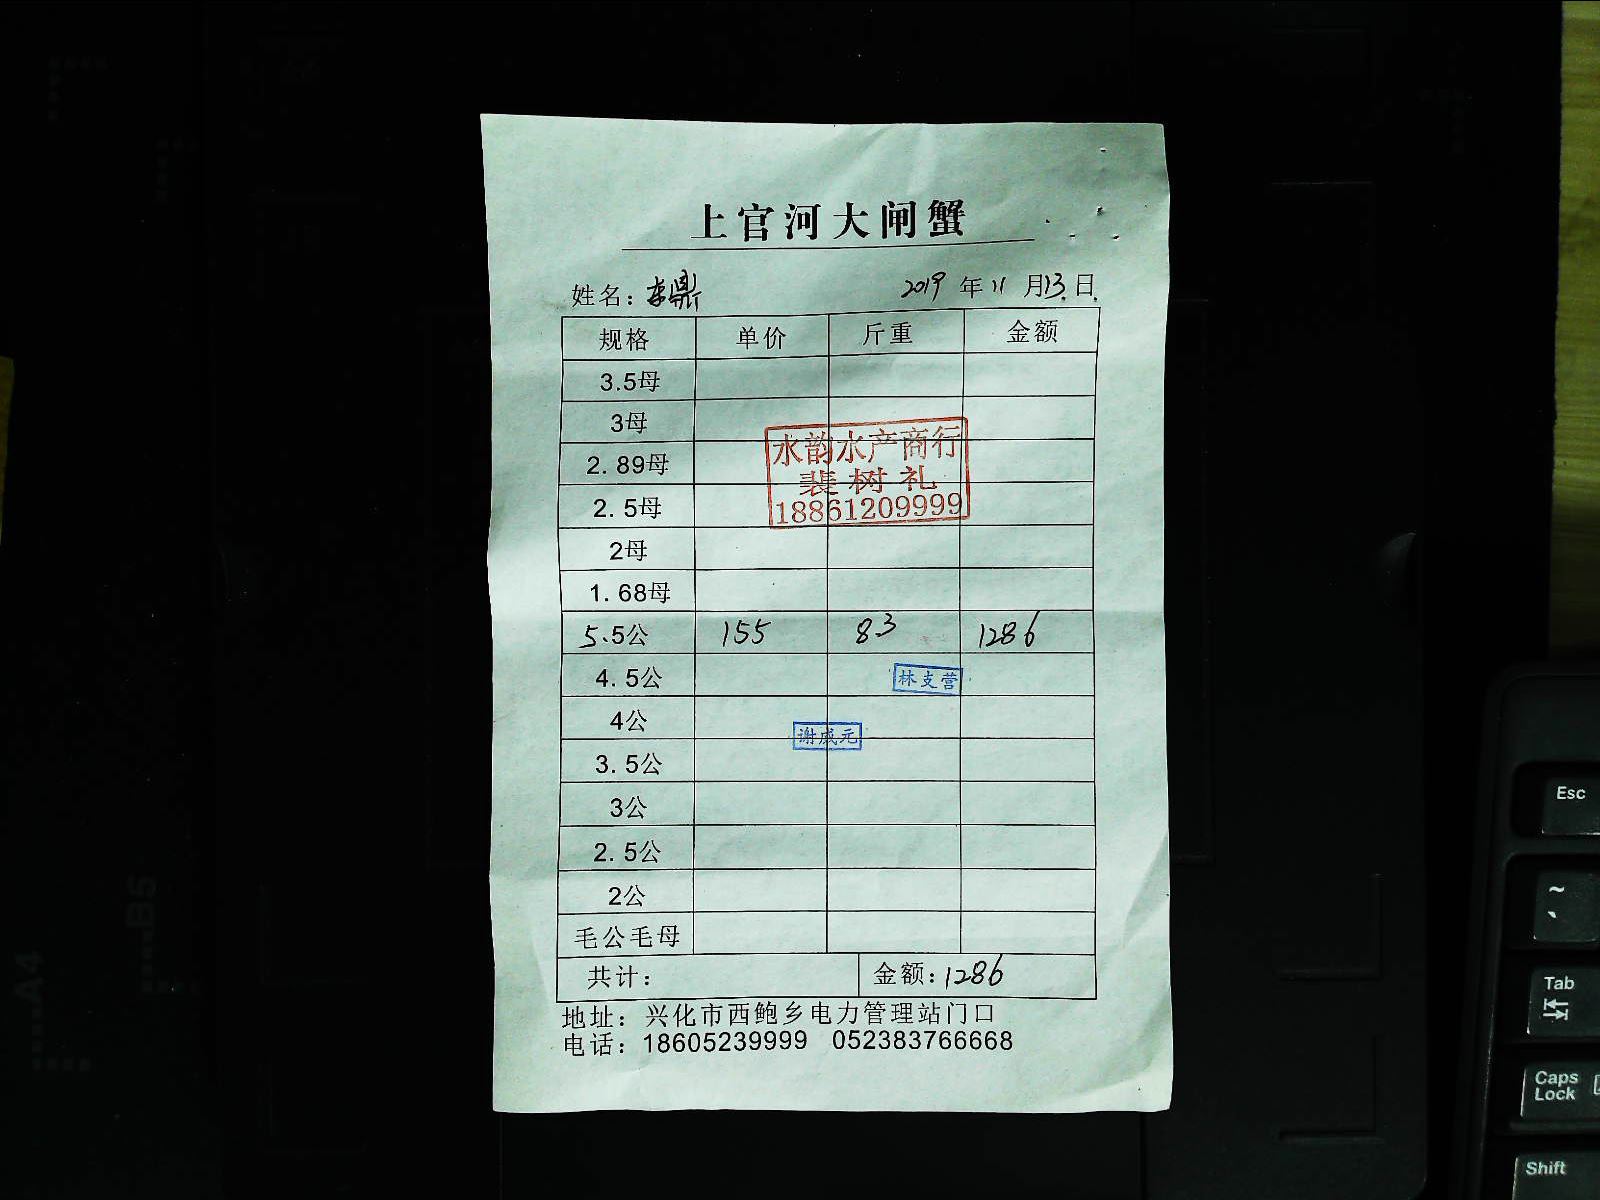 上官河大闸蟹
姓名：李鼎 2019 年 11 月 13 日
规格 单价 斤重 金额
3.5母
3母
2.89母
2.5母
2母
1.68母
水韵水产商行
裴树礼
18861209999
5.5公 155 83 1286
4.5公
林支营
4公
谢成元
3.5公
3公
2.5公
2公
毛公毛母
共计： 金额：1286
地址：兴化市西鲍乡电力管理站门口
电话：18605239999 052383766668
A4
B5
Esc
~
Tab
Caps Lock
Shift